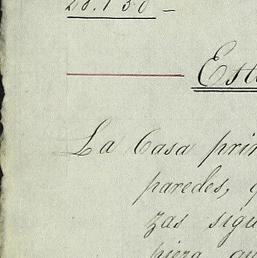 28.130 -
Est
La Casa prin
paredes, q
zas sigu
pieza qu